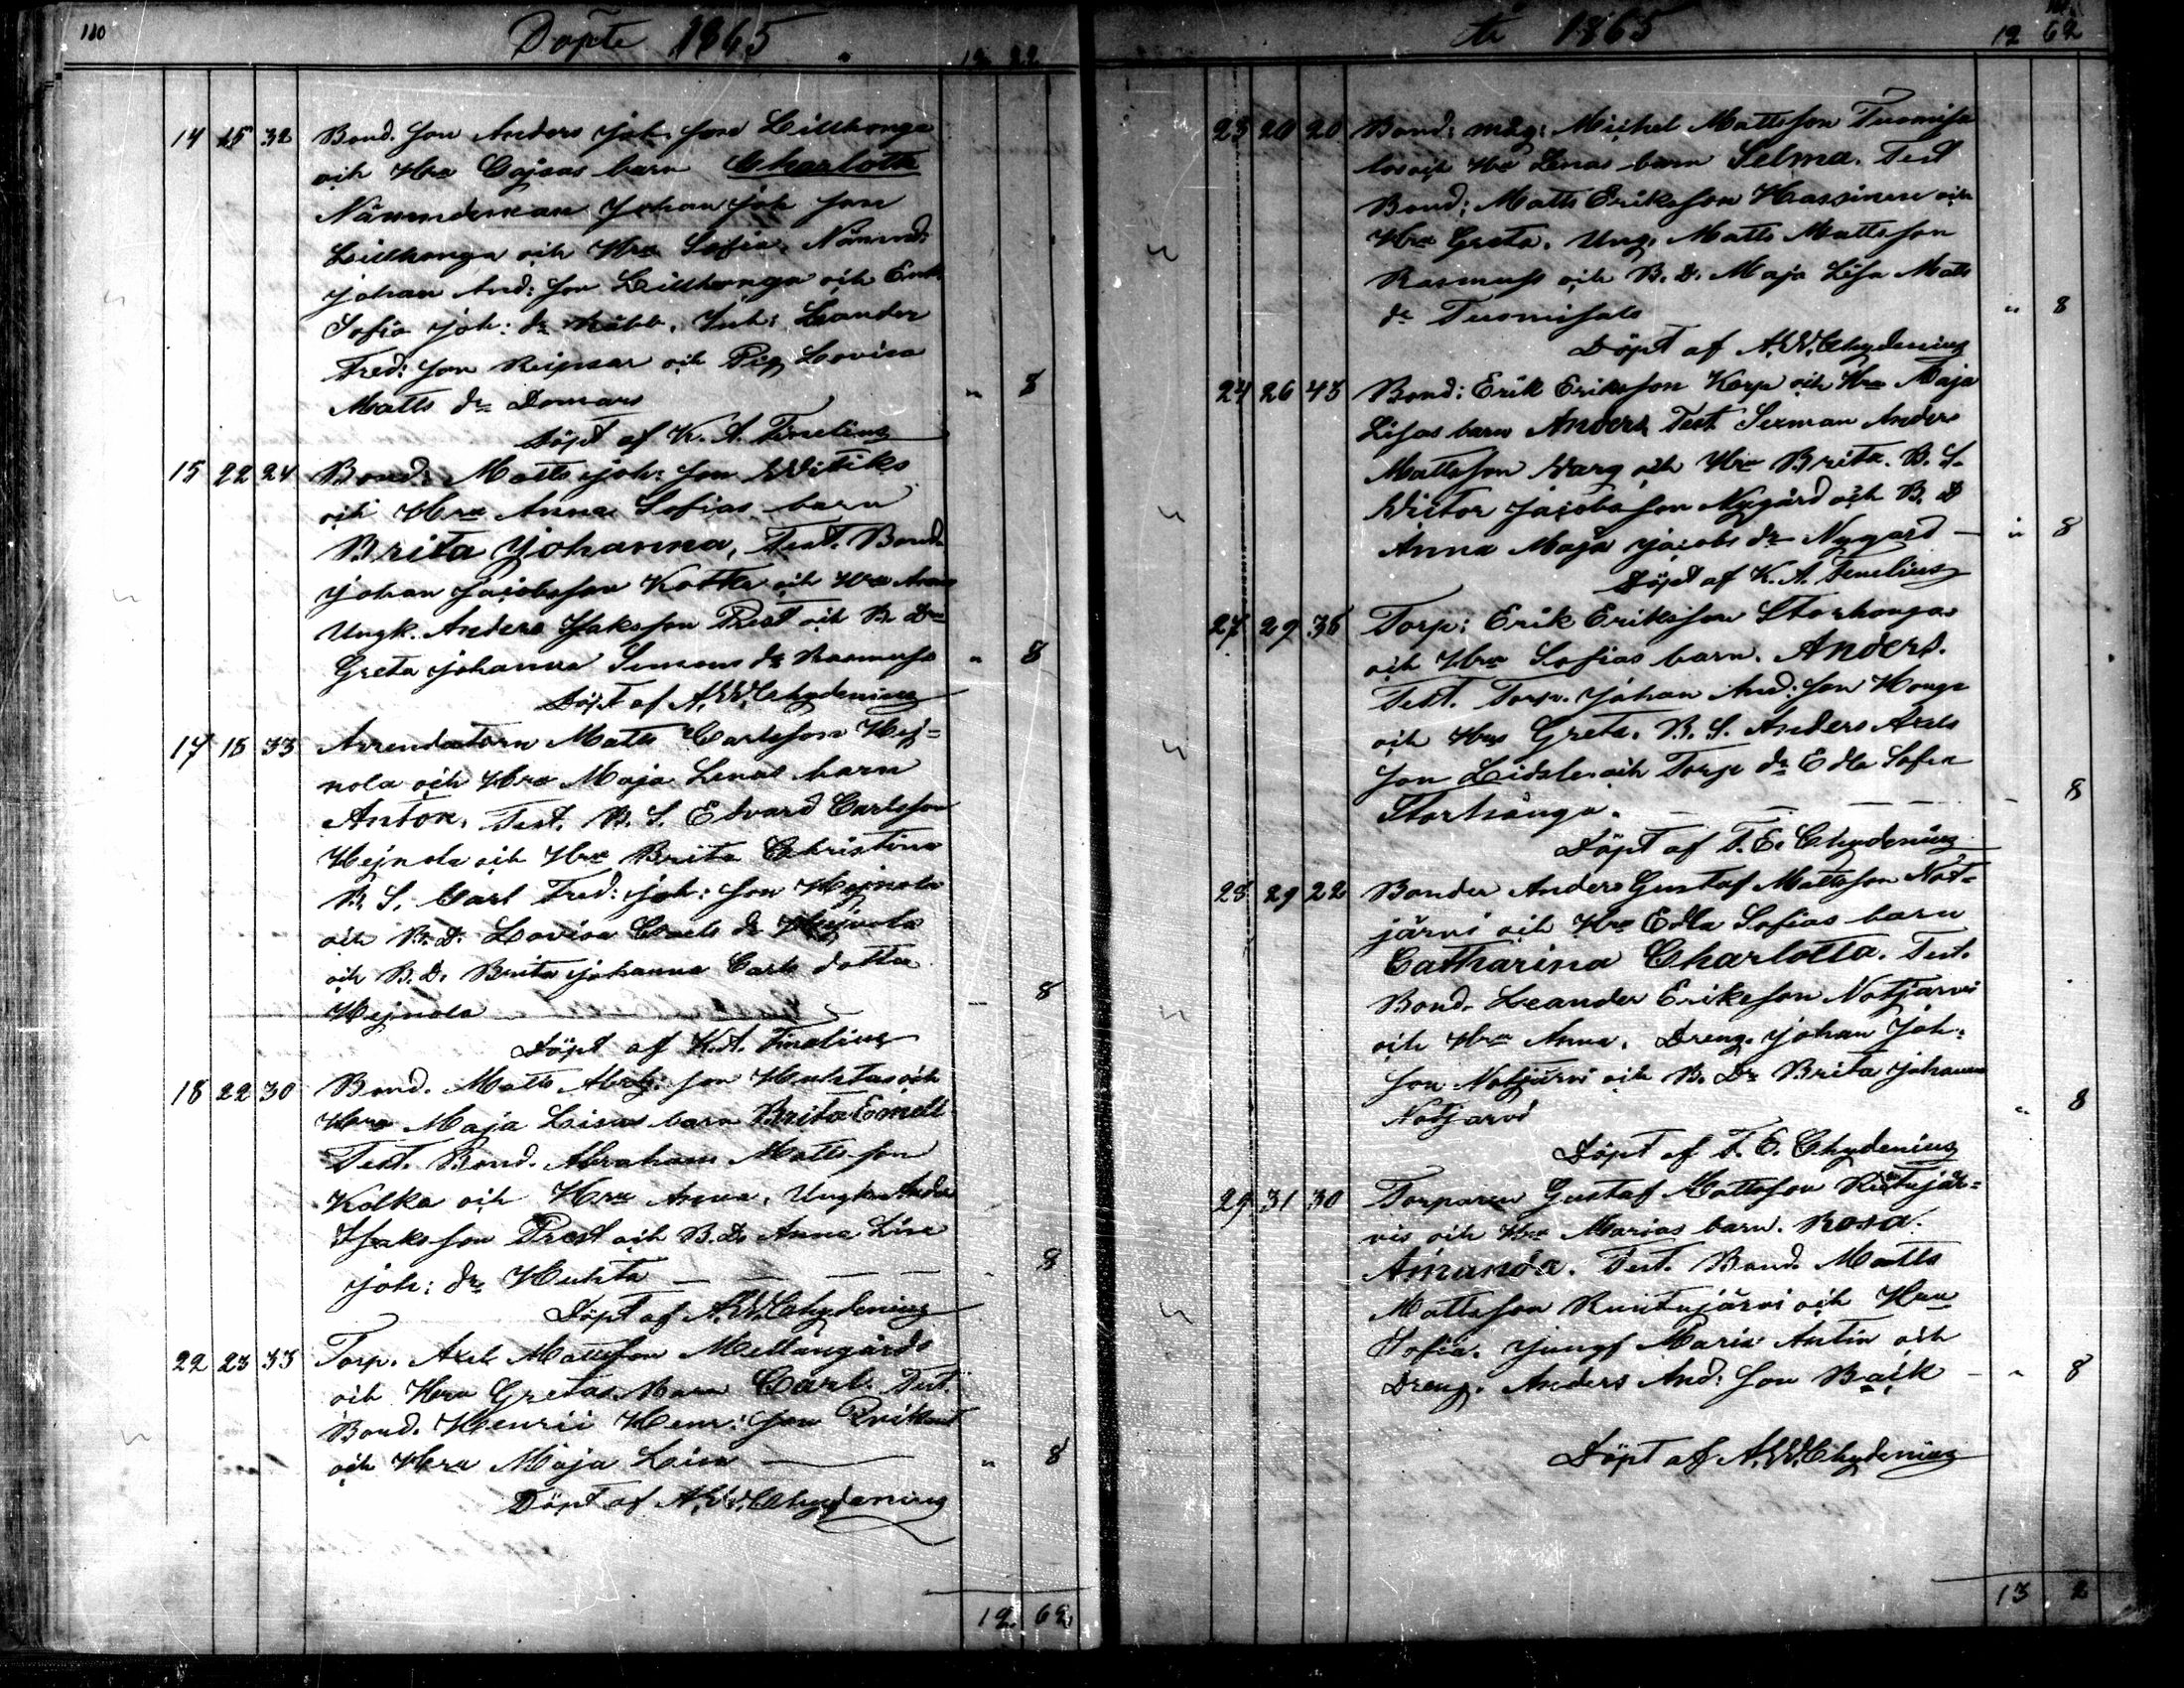 180 Döpte 1865
12 22
14 15 32 Bond. Son Anders Joh. Son Lillhonga
och Hru Cajsas barn Charlotta
Nämndeman Johan Joh Son
Lillhonga och Hru Sofia. Nämnd:
Johan And: Son Lillhonga och Enk.
Sofia Joh: dr Inh: Leander
Fred: Son Reipsar och Pig Lovisa
Matts dr Domars " 8
Döpt af K. A. Timelius
15 22 24 Bond: Matts Joh: Son Witiks
och Hru Anna Sofias barn
Brita Johanna, Test. Bond.
Johan Jacobsson Kotka och Hru Anna
Ungk. Anders Isaksson Prest och B. Dr
Greta Johanna Simons dr Rasmuss " 8
Döpt af A. W. Chydenius
17 18 33 Arrendatorn Matts Carlsson Hej=
nola och Hru Maja Lenas barn
Anton. Test. B. S. Edvard Carlsson
Hejnola och Hru Brita Christina
B. S. Carl Fred: Joh: Son Hejnola
och B. D. Lovisa Carls dr Hejnola
och B. D. Brita Johanna Carls dotter
Hejnola 8
Döpt af K. A. Timelius
18 22 30 Bond. Matts Abrh: Son Huhtas och
Hru Maja Lisas barn Brita
Test. Bond. Abraham Matts Son
Kolka och Hru Anna. Ungk. Anders
Isaksson Prest och B. D. Anna Lisa
Joh: dr Huhta 8
Döpt af A. W. Chydenius
22 23 33 Torp. Axel Mattsson Mellangårds
och Hru Gretas Barn Carl. Test.
Bond. Henrii Henr: Son
och Hru Maja Lisa " 8
Döpt af A. W. Chydenius
12 62
år 1865
12 62
23 20 20 Bond: måg: Michel Mattsson Tuomisa
los och Hru Lenas barn Selma. Test
Bond: Matts Eriksson Hassinen och
Hru Greta. Ung. Matts Mattsson
Rasmuss och B. D. Maja Lisa Matts
dr Tuomisalo " 8
Döpt af A. W. Chydenius
24 26 43 Bond: Erik Eriksson Korp och Hru Maja
Lisas barn Anders. Test. Sexman Anders
Mattsson Warg och Hru Brita. B. S.
Wictor Jacobsson Nygård och B. D
Anna Maja Jacobs dr Nygard " 8
Döpt af K. A. Timelius
27 29 36 Torp: Erik Eriksson Storhongas
och Hru Sofias barn. Anders.
Test. Torp. Johan And: Son Honga
och Hus Greta. B. S. Anders Axels
Son Lidsle och Torp dr Edla Sofia
Storhånga. 8
Döpt af T. E. Chydenius
28 29 22 Bonden Anders Gustaf Mattsson Not=
järvi och Hru Edla Sofias barn
Catharina Charlotta. Test.
Bond. Leander Eriksson Notjarvi
och Hru Anna. Dreng. Johan Joh:
Son Notjärvi och B. Dr Brita Johanna
Notjarvi " 8
Döpt af T. E. Chydenius
29 31 30 Torparen Gustaf Mattsson Rutujär=
vis och Hru Marias barn. Rosa.
Amanda. Test. Bond. Matts
Mattsson Ruutujärvi och Hru
Sofia. Jungf Maria Antin och
Dreng. Anders And: Son Baik " 8
Döpt af A. W. Chydenius
13 2